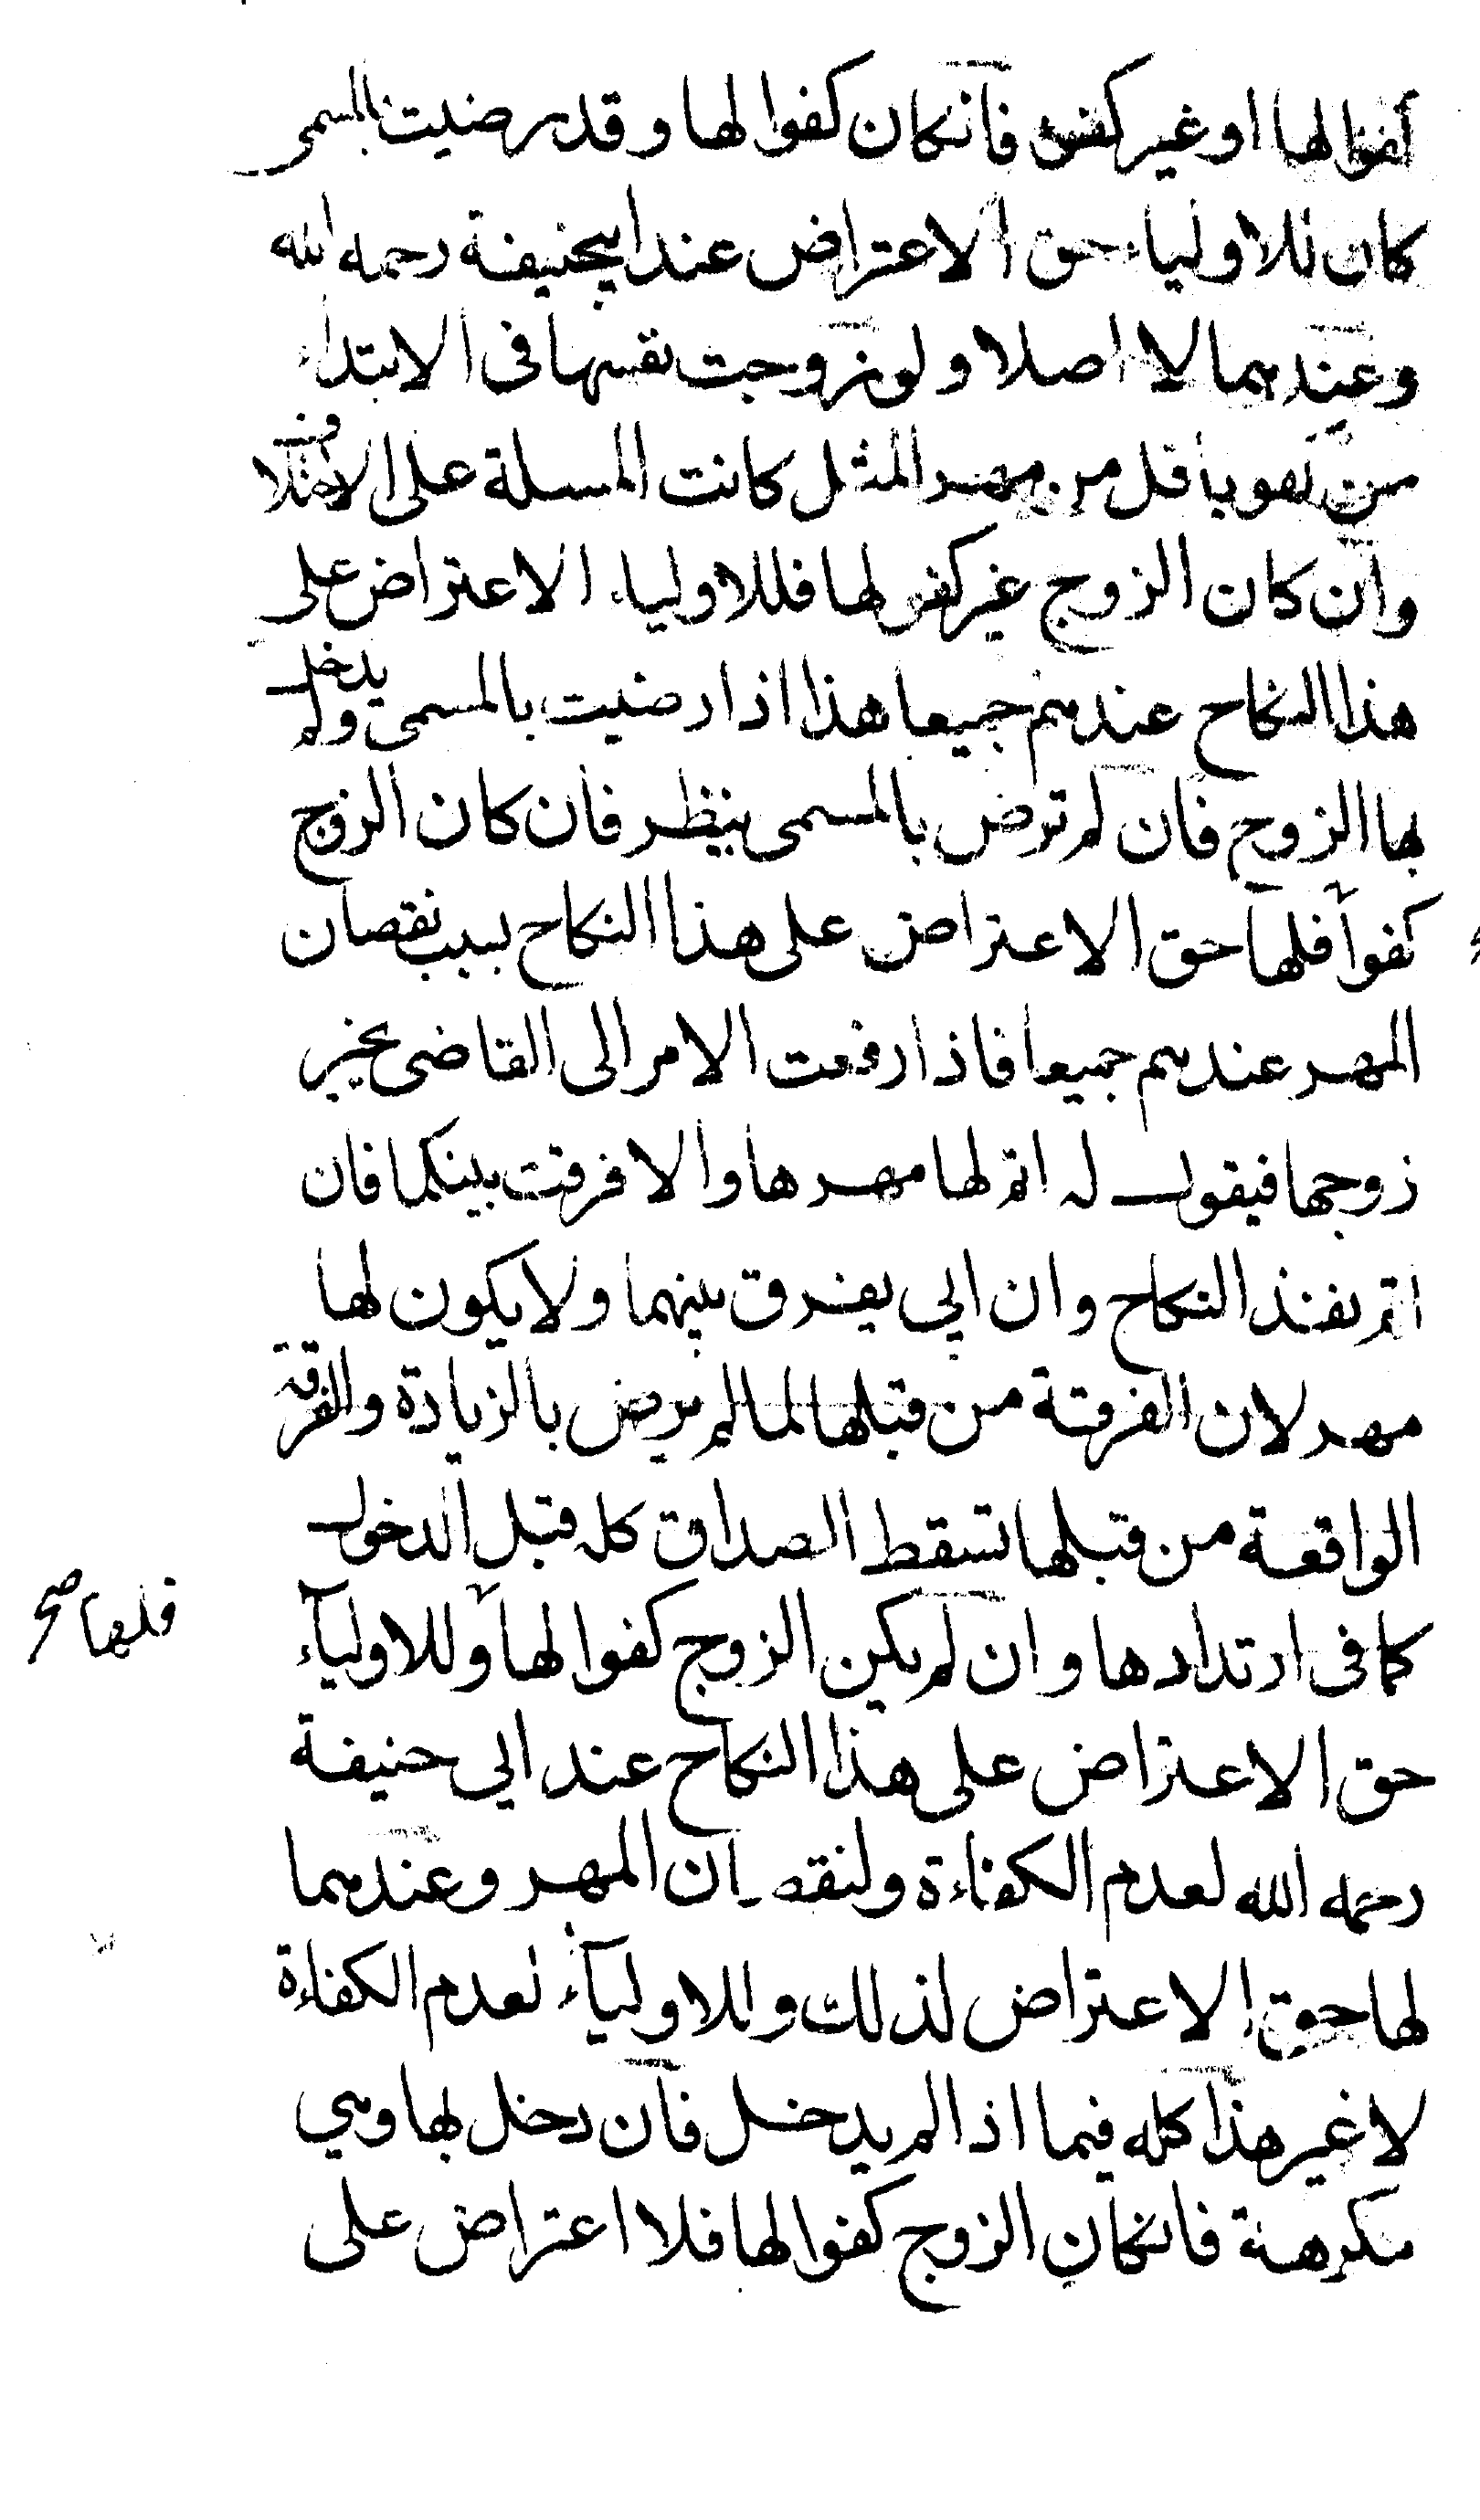 كفوا لها او غير كفو فانكان كفوا لها وقد رضيت بالمسمى
كان للاولياء حق الاعتراض عند ابيحنيفة رحمه الله
وعندهما لا اصلا ولو زوجت نفسها فى الابتداء
من كفو باقل من مهر المثل كانت المسلة على الاختلاف
وان كان الزوج غير كفو لها فللاولياء الاعتراض على
هذا النكاح عندهم جميعا هذا اذا رضيت بالمسمى ولم يدخل
بها الزوج فان لم ترض بالمسمى ينظر فان كان الزوج
كفوا فلها حق الاعتراض على هذا النكاح بسبب نقصان
المهر عندهم جميعا فاذا رفعت الامر الى القاضى يخير
زوجها فيقول له اتم لها مهرها والا فرقت بينكما فان
اتم نفذ النكاح وان ابى يفرق بينهما ولا يكون لها
مهر لان الفرقة من قبلها لما لم يرض بالزيادة والفرقة
الواقعة من قبلها تسقط الصداق كله قبل الدخول
كما فى ارتدادها وان لم يكن الزوج كفوا لها وللاوليآء
فلها صح
حق الاعتراض على هذا النكاح عند ابى حنيفة
رحمه الله لعدم الكفاءة ولنقصان المهر وعندهما
لها حق الاعتراض لذلك وللاوليآء لعدم الكفاءة
لا غير هذا كله فيما اذا لم يدخل فان دخل بها وهى
مكرهة فانكان الزوج كفوا لها فلا اعتراض على